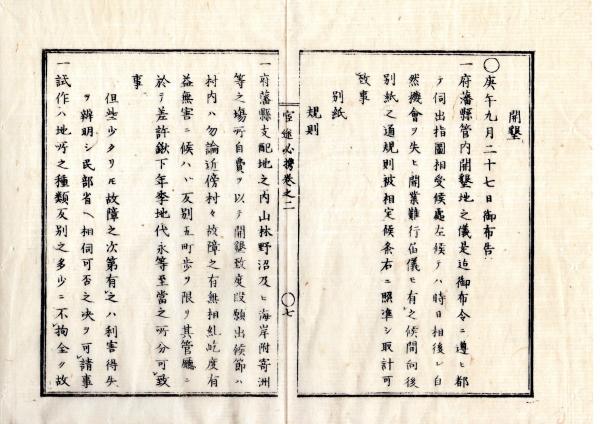 開墾
◯庚午九月二十七日御布告
一府藩縣管内開墾地之儀是迄御布令ニ遵ヒ都
テ伺出指圖相受候處左候テハ時日相後レ自
然機會ヲ失ヒ開業難行佰儀モ有之候間向後
別紙之通規則被相定候条右ニ照準シ取計可
致事
別紙
規則
官途必携巻之二
◯七
一府藩縣支配地之内山林野沼及ヒ海岸附寄洲
等之場所自費ヲ以テ開墾致度段願出候節ハ
村内ハ勿論近傍村々故障之有無相糺屹度有
益無害ニ候ハヽ反別五町歩ヲ限リ其管廳ニ
於テ差許鍬下年季地代永等至當之所分可致
事
但些少タリモ故障之次第有之ハ利害得失
ヲ辨明シ民部省ヘ相伺可否之决ヲ可請事
一試作ハ地所之種類反別之多少ニ不拘全ク故